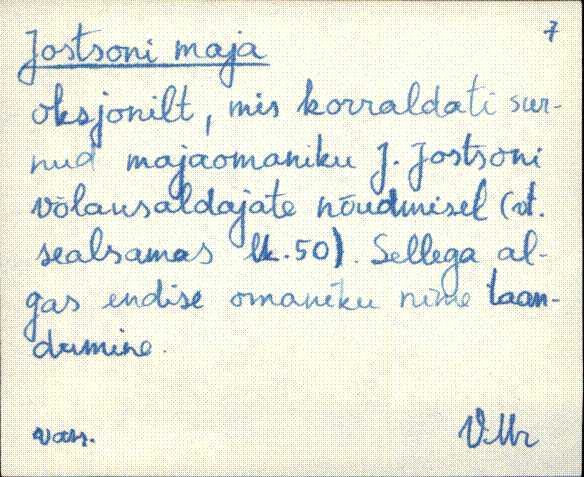 7
Jostsoni maja
oksjonilt, mis korraldati sur-
nud majaomaniku J. Jostsoni
võlausaldajate nõudmisel (vt.
sealsamas lk. 50). Sellega al-
gas endise omaniku nime taan-
dumine.
van. V.Ur